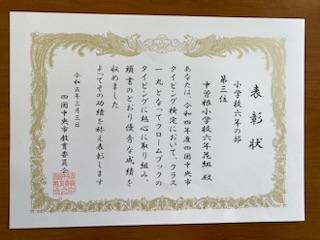 表彰状
小学校六年の部
第三位
中曽根小学校六年花組 殿
あなたは、令和四年度四国中央市
タイピング検定において、クラス
一丸となってクロームブックの
タイピングに熱心に取り組み、
頭書のとおり優秀な成績を
収めました
よってその功績を称え表彰します
令和五年三月三日
四国中央市教育委員会